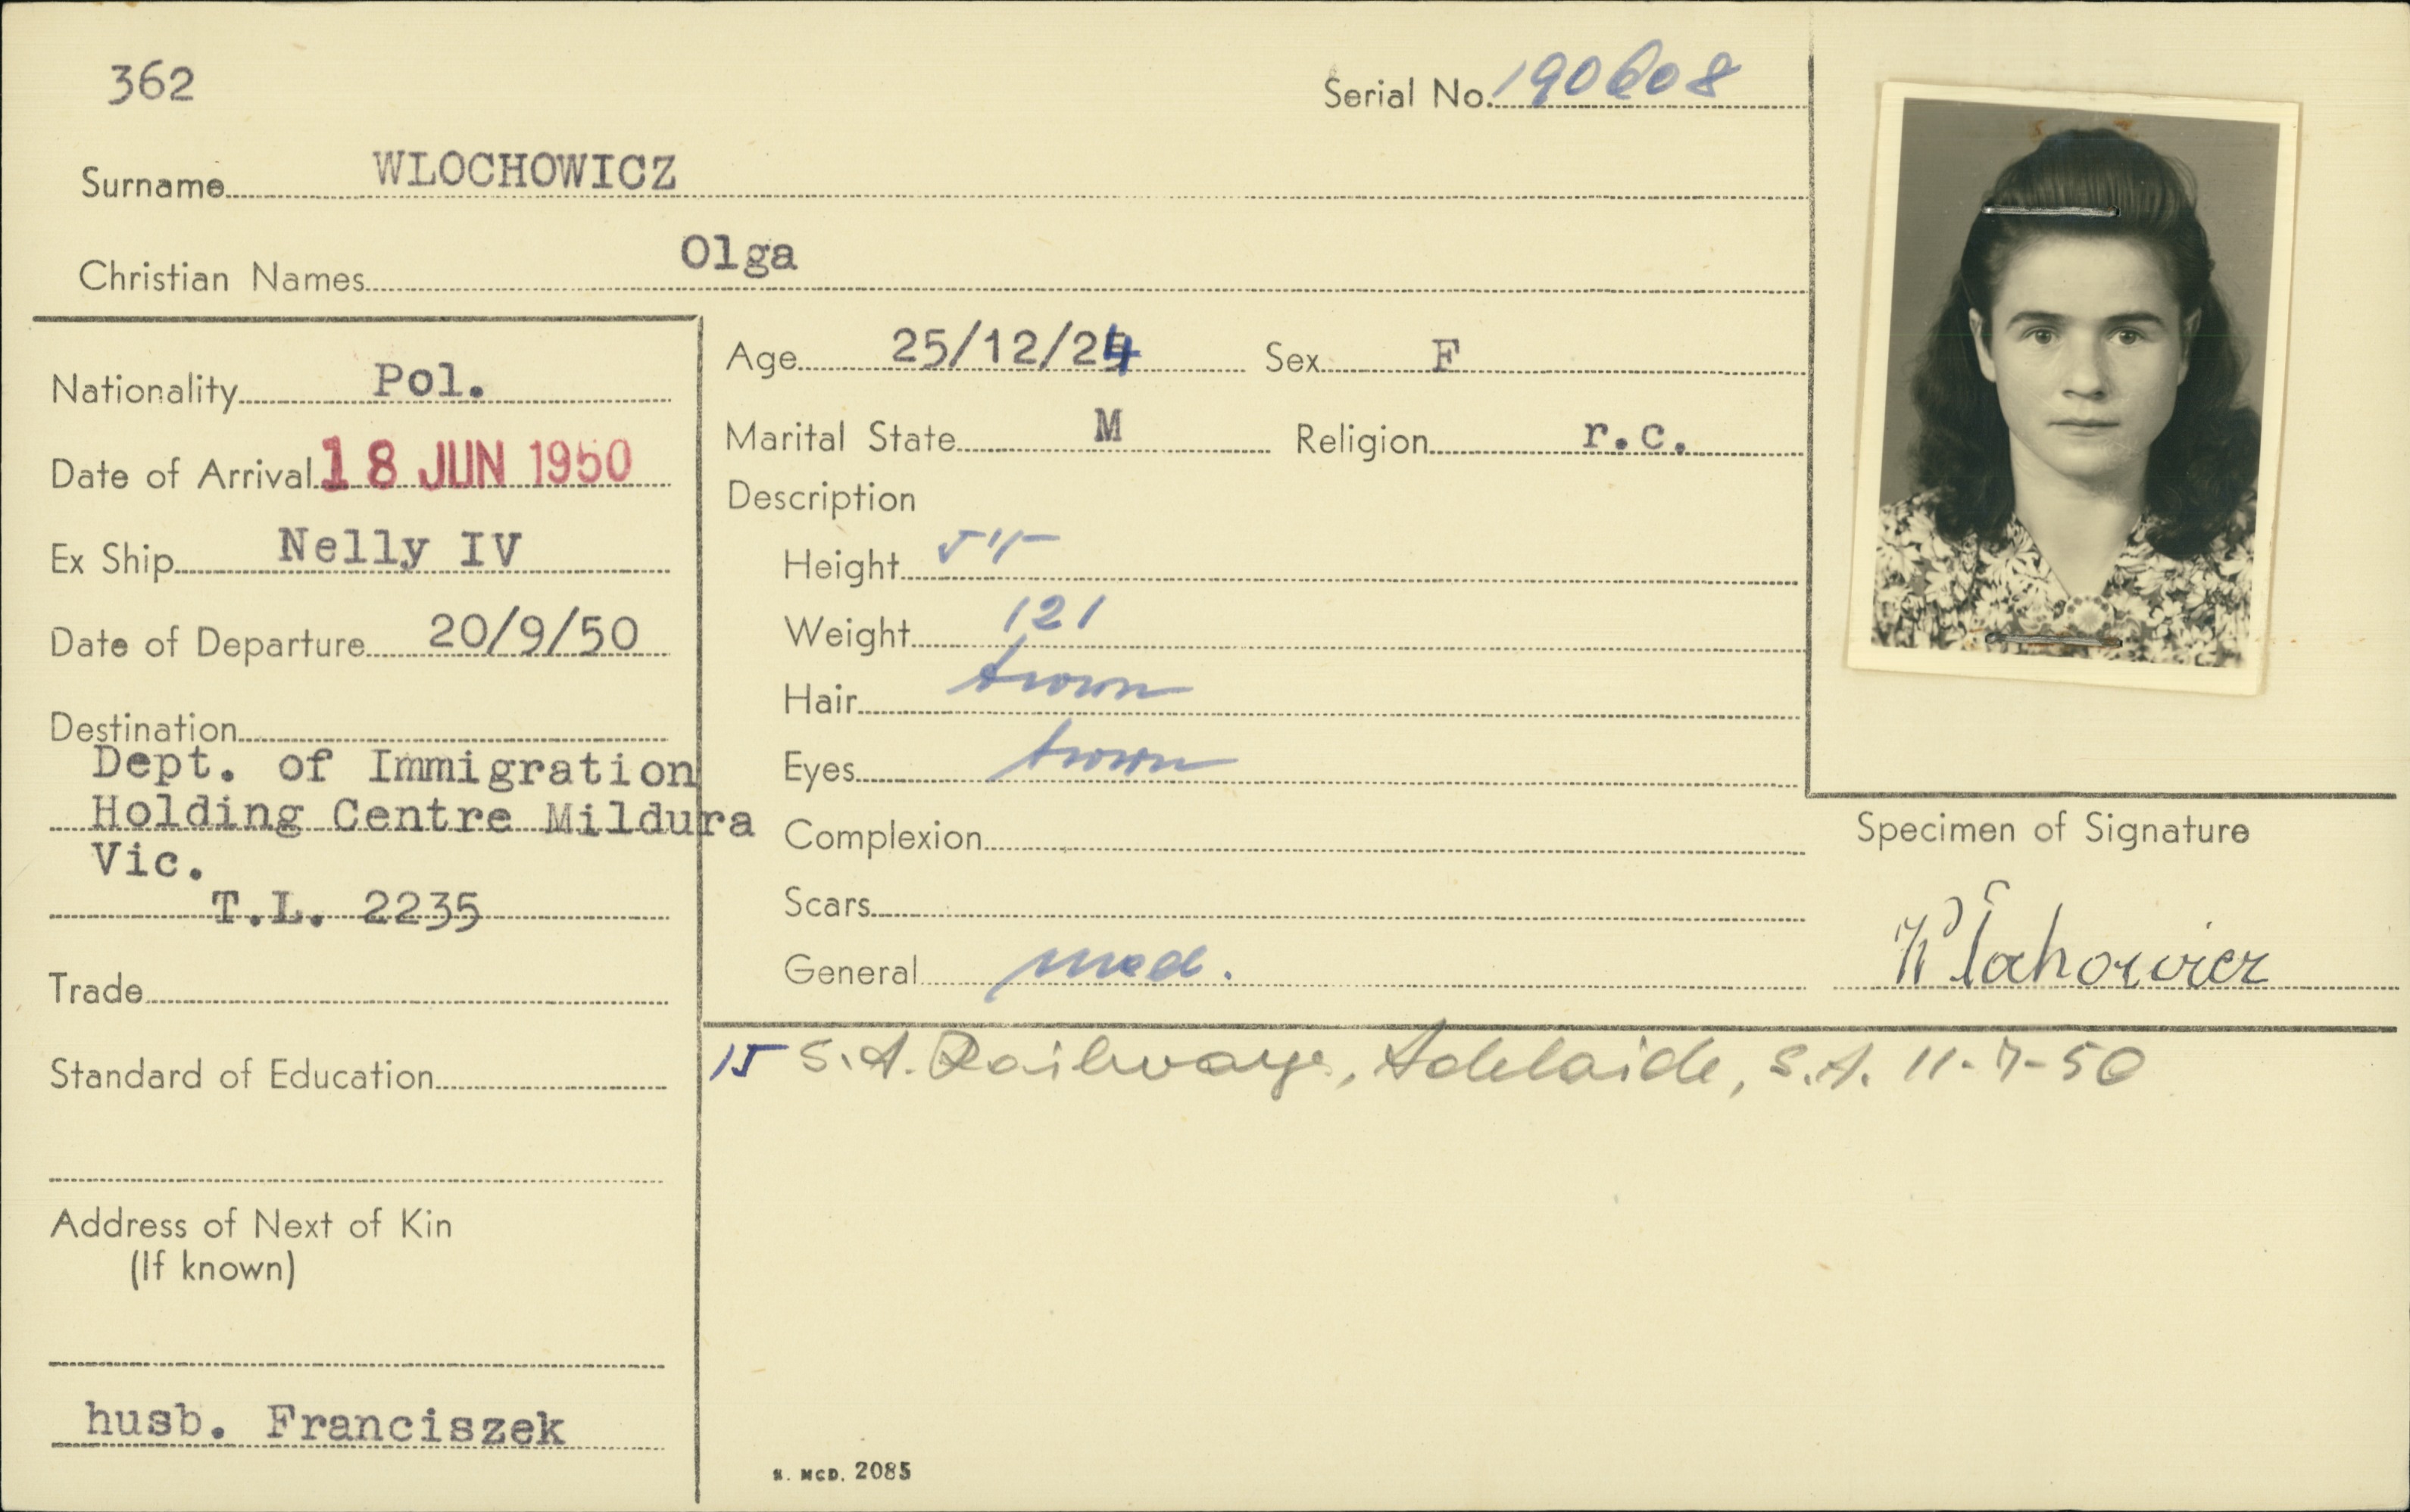 362
Serial No. 190608
Surname WLOCHOWICZ
Christian Names Olga
Nationality Pol.
Date of Arrival 18 JUN 1950
Ex Ship Nelly IV
Date of Departure 20/9/50
Destination
Dept. of Immigration
Holding Centre Mildura
Vic.
T.L. 2235
Trade
Standard of Education
Address of Next of Kin
(If known)
husb. Franciszek
Age 25/12/24 Sex F
Marital State M Religion r.c.
Description
Height 5'5
Weight 121
Hair brown
Eyes brown
Complexion
Scars
General med.
Specimen of Signature
Włochowicz
15 S.A. Railways, Adelaide, S.A. 11-7-50
MCD. 2085